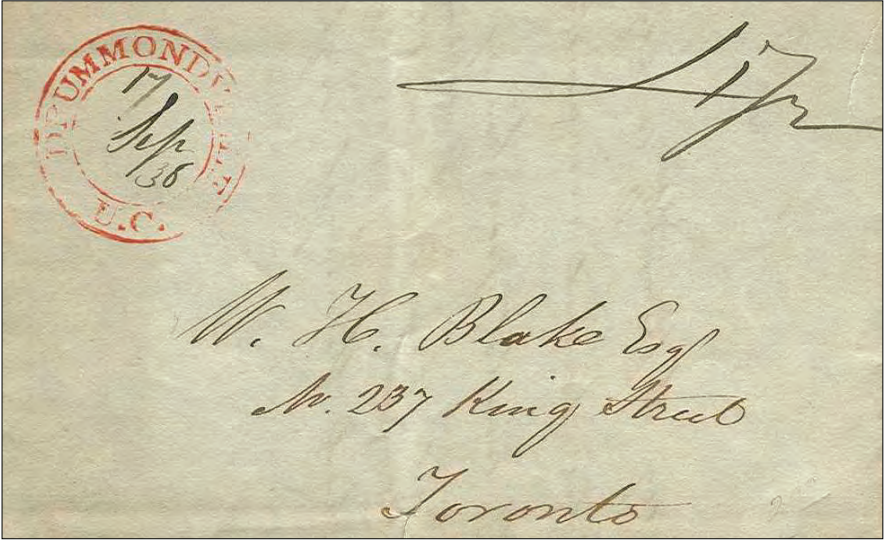 DRUMMONDVILLE
17
Sep
38
U.C.
W. H. Blake Esq
No. 237 King Street
Toronto